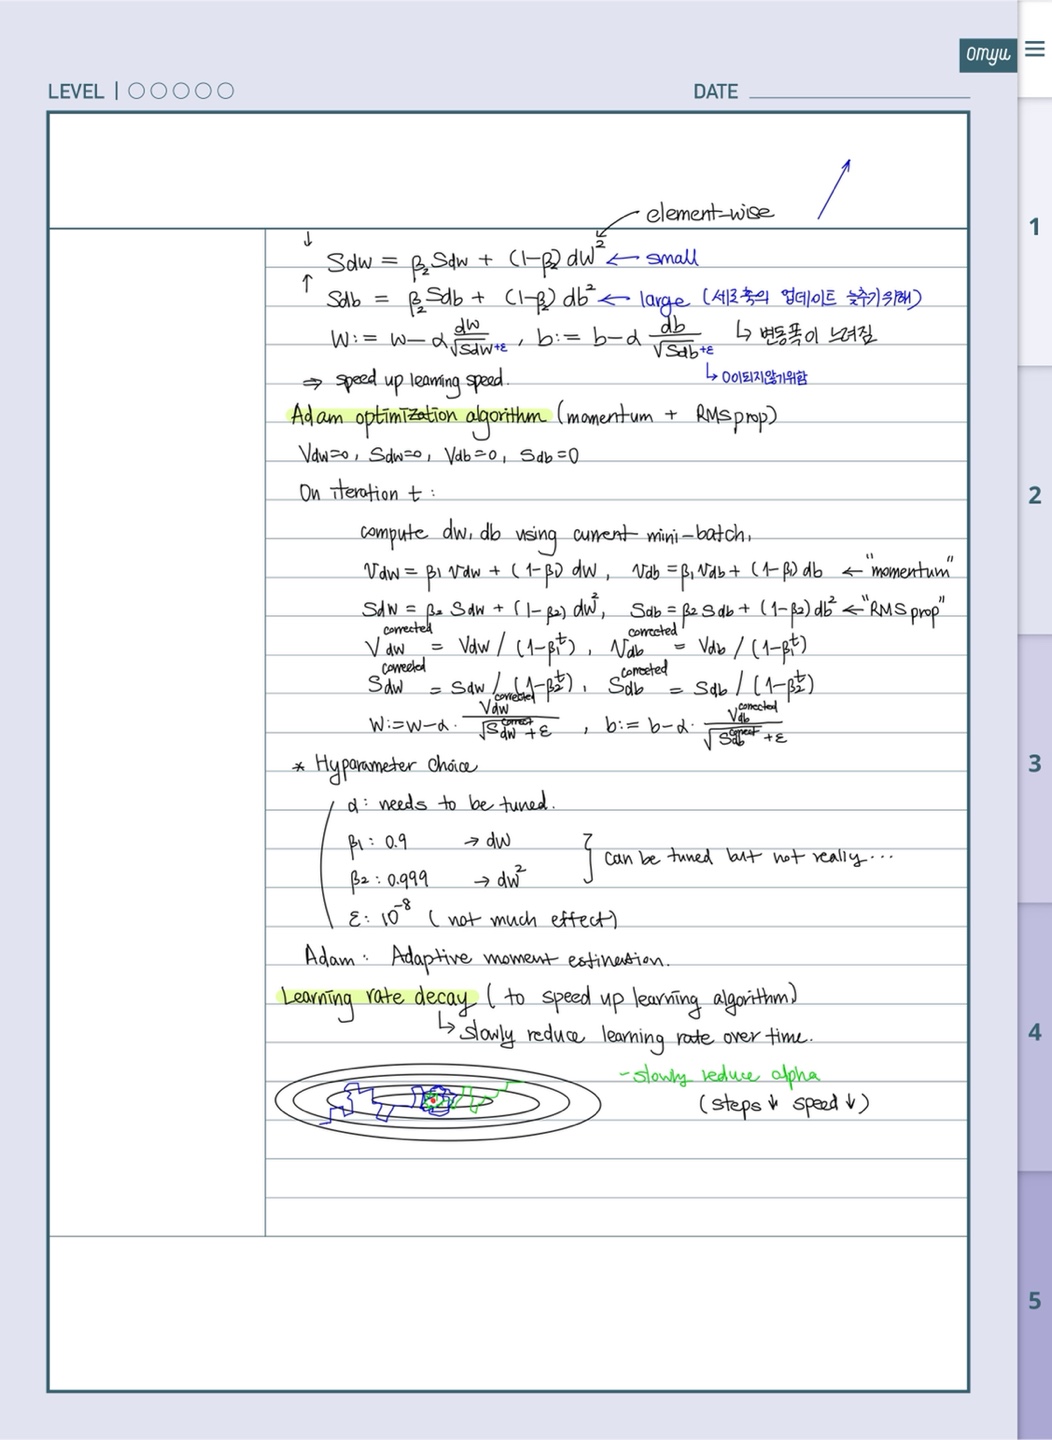 omyu
LEVEL | ○○○○○
DATE
element-wise
↓ Sdw = β₂Sdw + (1-β₂) dW² ← small
↑ Sdb = β₂Sdb + (1-β₂) db² ← large (세로축의 업데이트 늦추기위해)
W := w - α dw/√Sdw+ε , b := b - α db/√Sdb+ε ↳ 변동폭이 느려짐
⇒ speed up learning speed. ↳ 0이되지않기위함
Adam optimization algorithm (momentum + RMSprop)
Vdw=0, Sdw=0, Vdb=0, Sdb=0
On iteration t :
compute dw, db using current mini-batch.
Vdw = β₁ Vdw + (1-β₁) dW, Vdb = β₁ Vdb + (1-β₁) db ← "momentum"
Sdw = β₂ Sdw + (1-β₂) dw², Sdb = β₂ Sdb + (1-β₂) db² ← "RMSprop"
Vdw^corrected = Vdw / (1-β₁ᵗ), Vdb^corrected = Vdb / (1-β₁ᵗ)
Sdw^corrected = Sdw / (1-β₂ᵗ), Sdb^corrected = Sdb / (1-β₂ᵗ)
W := w - α · Vdw^corrected/√Sdw^correct + ε , b := b - α · Vdb^corrected/√Sdb^correct + ε
* Hyparameter choice
α : needs to be tuned.
β₁ : 0.9 → dw
can be tuned but not really...
β₂ : 0.999 → dw²
ε : 10⁻⁸ (not much effect)
Adam : Adaptive moment estimation.
Learning rate decay (to speed up learning algorithm)
↳ slowly reduce learning rate over time.
- slowly reduce alpha
(steps ↓ speed ↓)
1
2
3
4
5